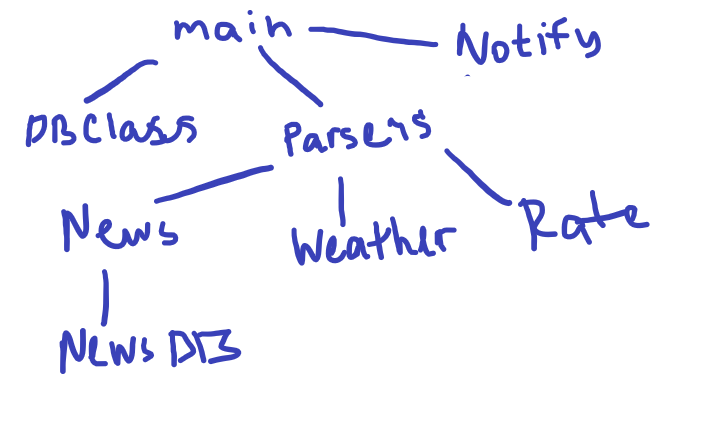 main
Notify
DBClass
Parsers
News
Weather
Rate
NewsDB